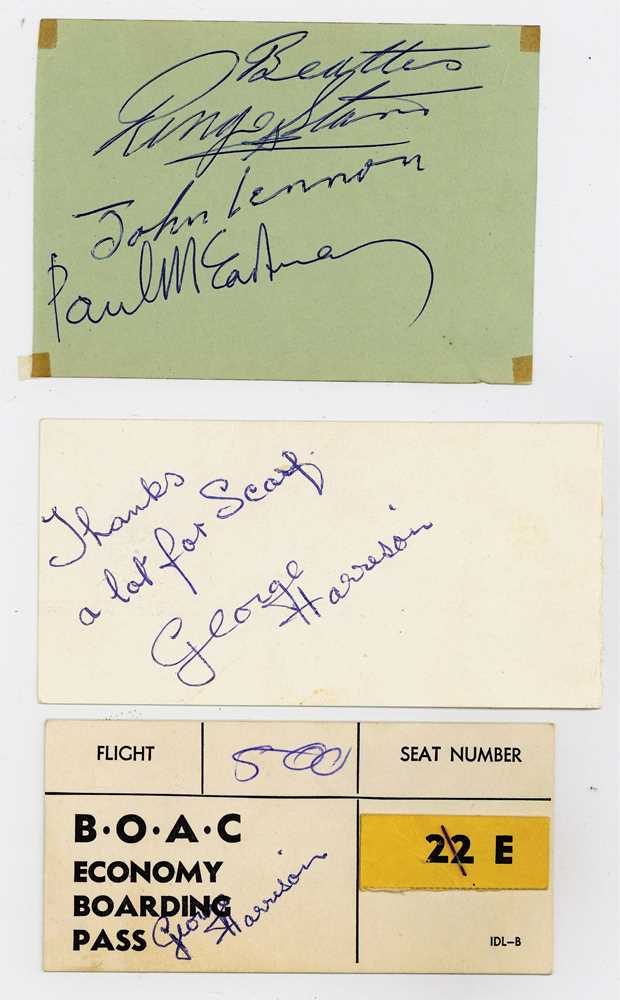 Beatles
Ringo Starr
John Lennon
Paul McCartney
Thanks
a lot for Scarf.
George
Harrison
FLIGHT
500
SEAT NUMBER
B·O·A·C
ECONOMY
BOARDING
PASS
George
Harrison
22 E
IDL–B